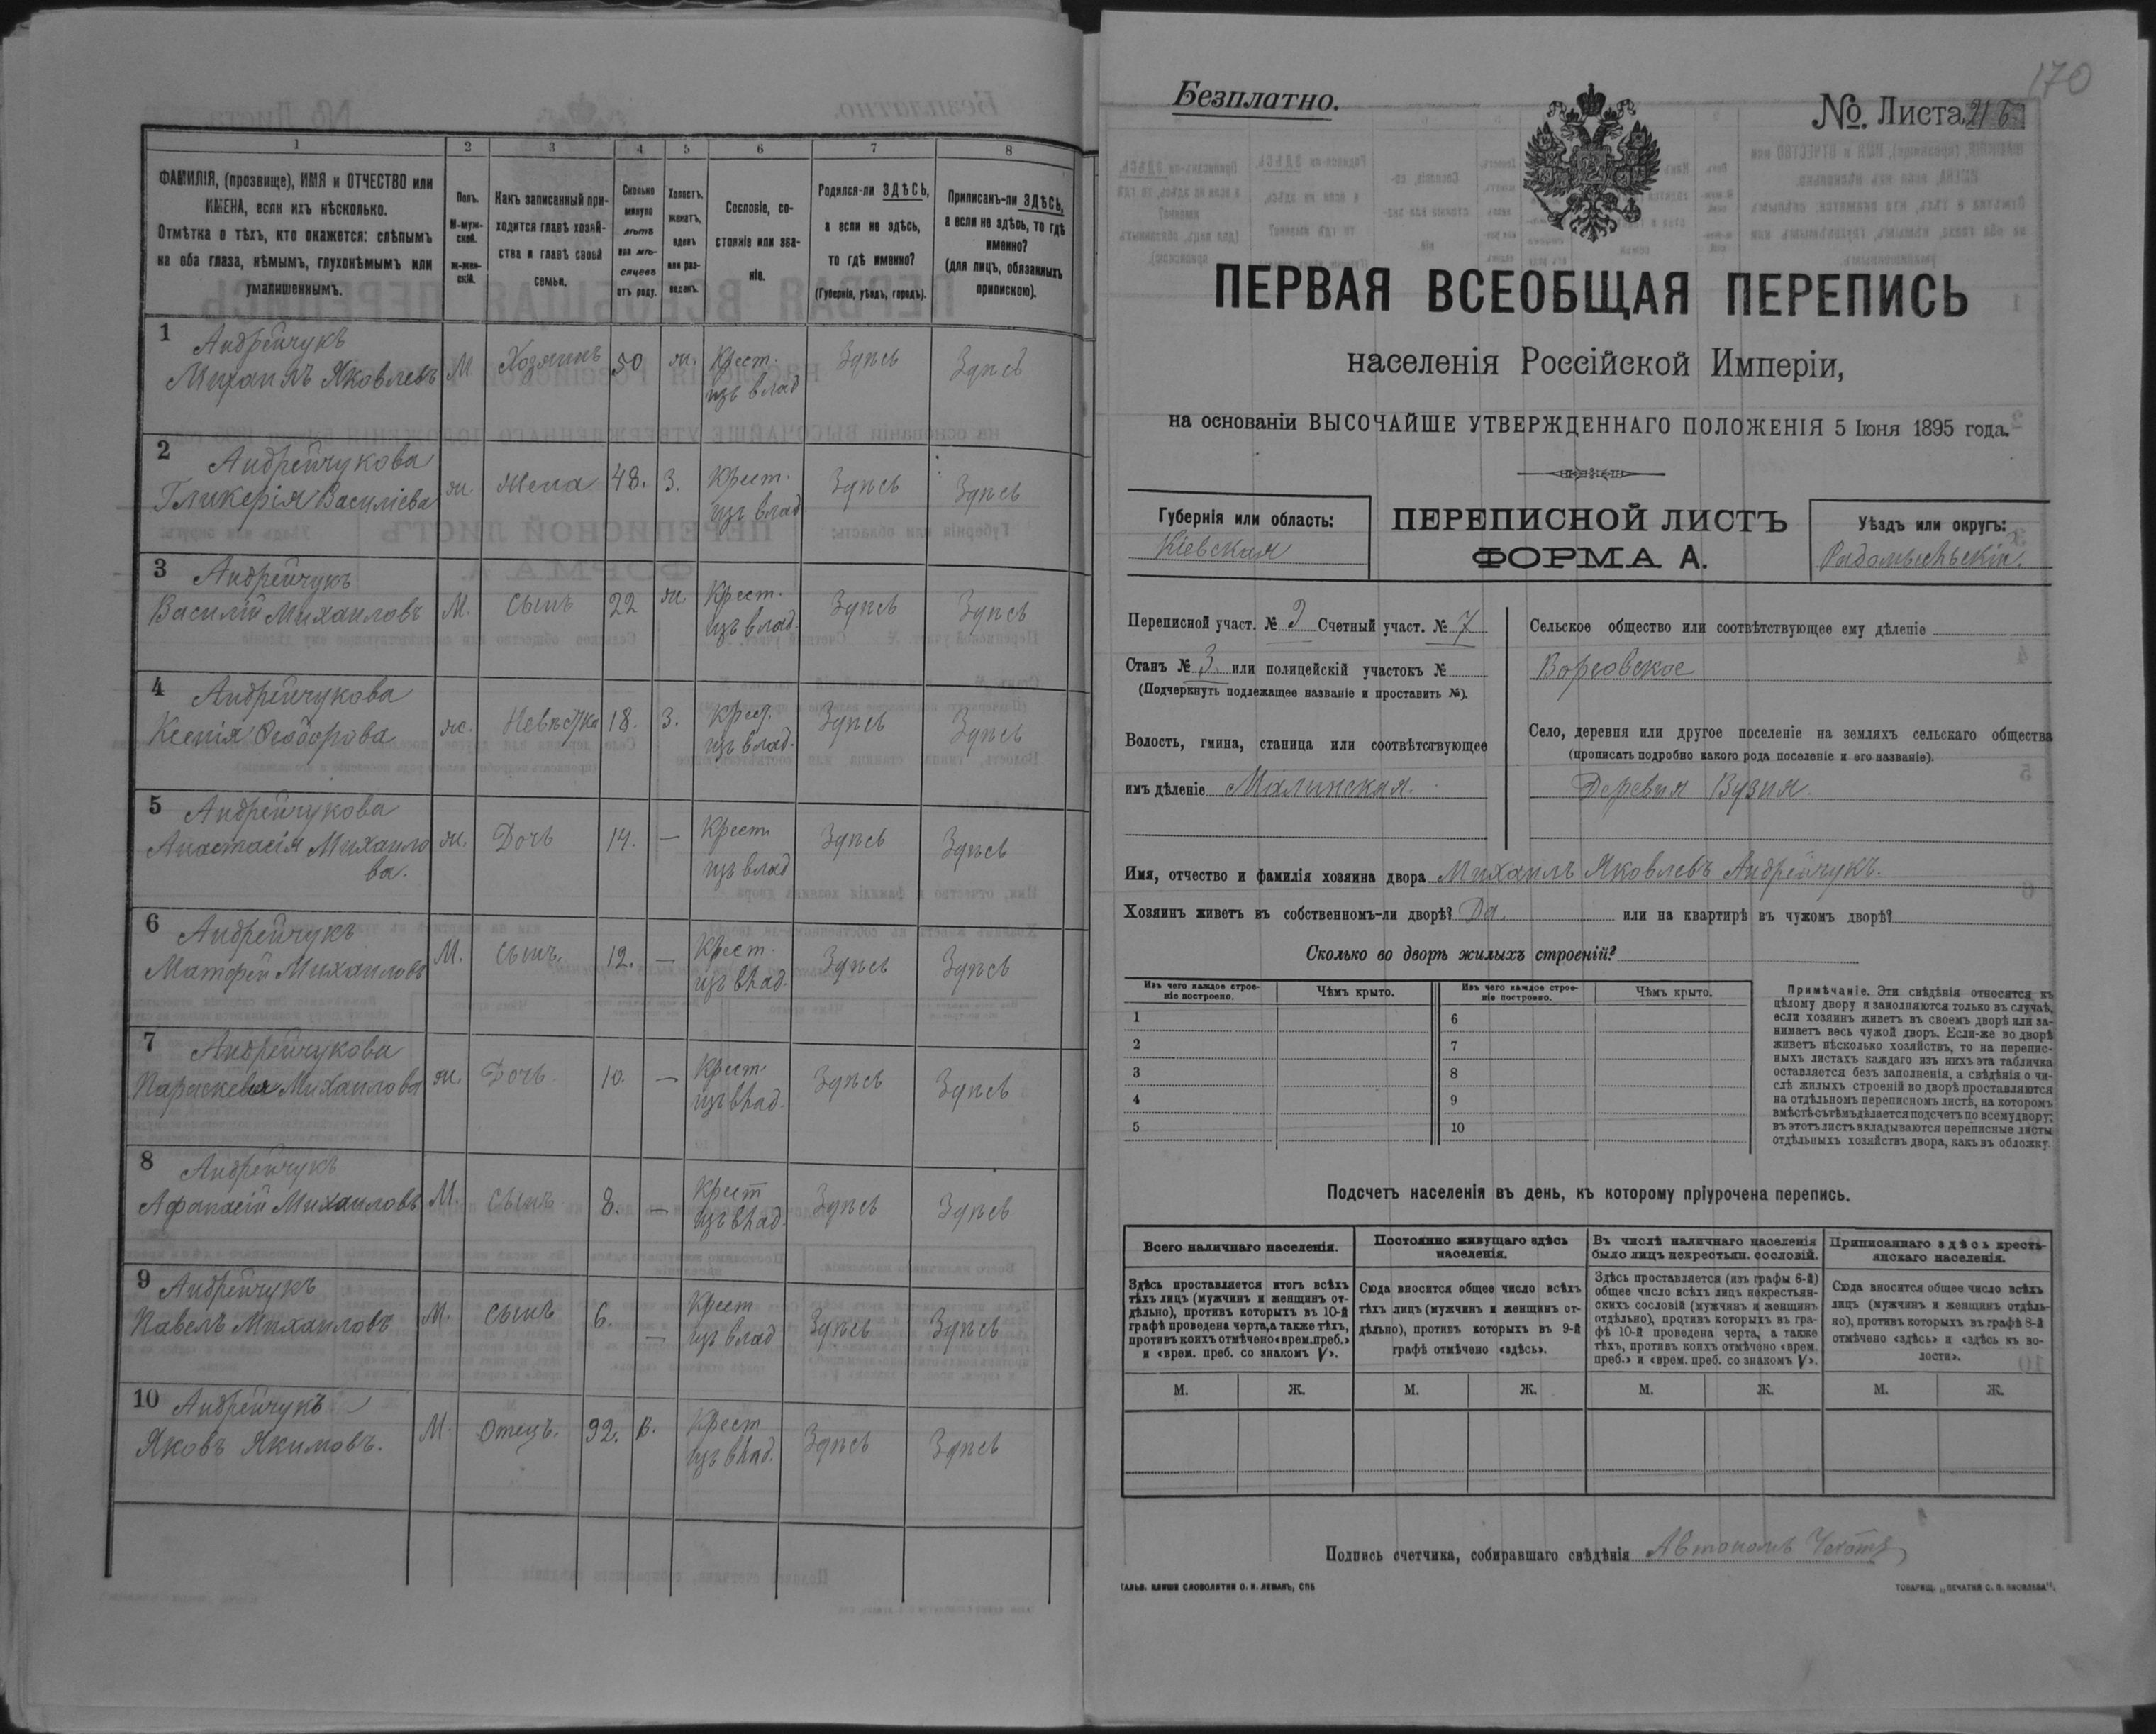 1 2 3 4 5 6 7 8
ФАМИЛІЯ, (прозвище), ИМЯ и ОТЧЕСТВО или
ИМЕНА, если ихъ нѣсколько.
Отмѣтка о тѣхъ, кто окажется: слѣпымъ
на оба глаза, нѣмымъ, глухонѣмымъ или
умалишеннымъ.
Полъ.
М-муж-
ской.
ж-жен-
скій.
Какъ записанный при-
ходится главѣ хозяй-
ства и главѣ своей
семьи.
Сколько
минуло
лѣтъ
или мѣ-
сяцевъ
отъ роду.
Холостъ,
женатъ,
вдовъ
или раз-
веденъ.
Сословіе, со-
стояніе или зва-
ніе.
Родился-ли ЗДѢСЬ,
а если не здѣсь,
то гдѣ именно?
(Губернія, уѣздъ, городъ).
Приписанъ-ли ЗДѢСЬ,
а если не здѣсь, то гдѣ
именно?
(для лицъ, обязанныхъ
припискою).
1 Андрейчукъ
Михаилъ Яковлевъ М. Хозяинъ 50 ж. Крест. изъ влад Здѣсь Здѣсь
2 Андрейчукова
Гликерія Василіева ж. жена 48. З. Крест. изъ влад. Здѣсь Здѣсь
3 Андрейчукъ
Василій Михаиловъ М. сынъ 22 ж. Крест. изъ влад. Здѣсь Здѣсь
4 Андрейчукова
Ксенія Ѳеодорова ж. Невѣстка 18. З. Крест. изъ влад. Здѣсь Здѣсь
5 Андрейчукова
Анастасія Михаило
ва. ж. Дочь 14. — Крест. изъ влад Здѣсь Здѣсь
6 Андрейчукъ
Матфей Михаиловъ М. сынъ. 12. — Крест. изъ влад. Здѣсь Здѣсь
7 Андрейчукова
Параскева Михаилова ж. Дочь 10. — Крест. изъ влад. Здѣсь Здѣсь
8 Андрейчукъ
Афанасій Михаиловъ М. сынъ 8. — Крест изъ влад. Здѣсь Здѣсь
9 Андрейчукъ
Павелъ Михаиловъ М. сынъ 6. — Крест изъ влад Здѣсь Здѣсь
10 Андрейчукъ
Яковъ Якимовъ. М. Отецъ. 92. В. Крест изъ влад. Здѣсь Здѣсь
170
Безплатно.
№. Листа 21 б.
ПЕРВАЯ ВСЕОБЩАЯ ПЕРЕПИСЬ
населенія Россійской Имперіи,
на основаніи ВЫСОЧАЙШЕ УТВЕРЖДЕННАГО ПОЛОЖЕНІЯ 5 Іюня 1895 года.
Губернія или область:
Кіевская
ПЕРЕПИСНОЙ ЛИСТЪ
ФОРМА А.
Уѣздъ или округъ:
Радомысльскій.
Переписной участ. № 2 Счетный участ. № 7
Станъ № 3. или полицейскій участокъ №
(Подчеркнуть подлежащее названіе и проставить №).
Волость, гмина, станица или соотвѣтствующее
имъ дѣленіе Малинская.
Сельское общество или соотвѣтствующее ему дѣленіе
Ворсовское
Село, деревня или другое поселеніе на земляхъ сельскаго общества
(прописать подробно какого рода поселеніе и его названіе).
Деревня Вузня.
Имя, отчество и фамилія хозяина двора Михаилъ Яковлевъ Андрейчукъ.
Хозяинъ живетъ въ собственномъ-ли дворѣ? Да. или на квартирѣ въ чужомъ дворѣ?
Сколько во дворѣ жилыхъ строеній?
Изъ чего каждое строе-
ніе построено.
Чѣмъ крыто.
Изъ чего каждое строе-
ніе построено.
Чѣмъ крыто.
1 6
2 7
3 8
4 9
5 10
Примѣчаніе. Эти свѣдѣнія относятся къ
цѣлому двору и заполняются только въ случаѣ,
если хозяинъ живетъ въ своемъ дворѣ или за-
нимаетъ весь чужой дворъ. Если-же во дворѣ
живетъ нѣсколько хозяйствъ, то на перепис-
ныхъ листахъ каждаго изъ нихъ эта табличка
оставляется безъ заполненія, а свѣдѣнія о чи-
слѣ жилыхъ строеній во дворѣ проставляются
на отдѣльномъ переписномъ листѣ, на которомъ
вмѣстѣ съ тѣмъ дѣлается подсчетъ по всему двору;
въ этотъ листъ вкладываются переписные листы
отдѣльныхъ хозяйствъ двора, какъ въ обложку.
Подсчетъ населенія въ день, къ которому пріурочена перепись.
Всего наличнаго населенія.
Здѣсь проставляется итогъ всѣхъ
тѣхъ лицъ (мужчинъ и женщинъ от-
дѣльно), противъ которыхъ въ 10-й
графѣ проведена черта, а также тѣхъ,
противъ коихъ отмѣчено «врем. преб.»
и «врем. преб. со знакомъ V».
Постоянно живущаго здѣсь
населенія.
Сюда вносится общее число всѣхъ
тѣхъ лицъ (мужчинъ и женщинъ от-
дѣльно), противъ которыхъ въ 9-й
графѣ отмѣчено «здѣсь».
Въ числѣ наличнаго населенія
было лицъ некрестьян. сословій.
Здѣсь проставляется (изъ графы 6-й)
общее число всѣхъ лицъ некрестьян-
скихъ сословій (мужчинъ и женщинъ
отдѣльно), противъ которыхъ въ гра-
фѣ 10-й проведена черта, а также
тѣхъ, противъ коихъ отмѣчено «врем.
преб.» и «врем. преб. со знакомъ V».
Приписаннаго здѣсь кресть-
янскаго населенія.
Сюда вносится общее число всѣхъ
лицъ (мужчинъ и женщинъ отдѣль-
но), противъ которыхъ въ графѣ 8-й
отмѣчено «здѣсь» и «здѣсь къ во-
лости».
М. Ж. М. Ж. М. Ж. М. Ж.
Подпись счетчика, собиравшаго свѣдѣнія
ГАЛЬВ. КЛИШЕ СЛОВОЛИТНИ О. И. ЛЕМАНЪ, СПБ
ТОВАРИЩ. „ПЕЧАТНЯ С. П. ЯКОВЛЕВА“.